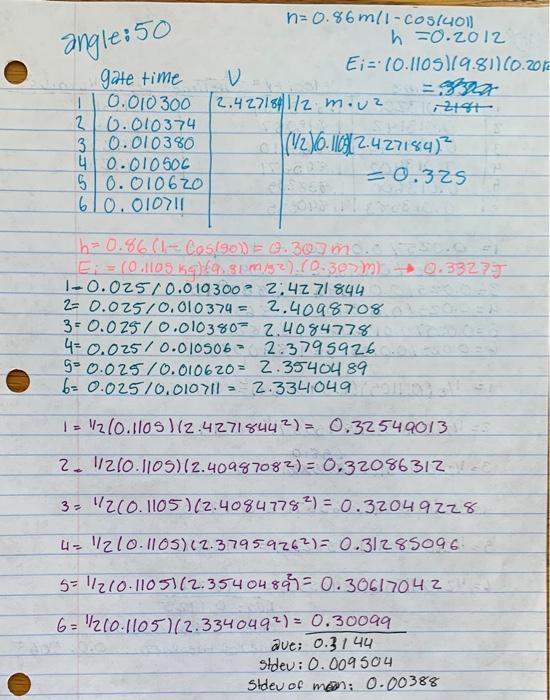 angle: 50
h=0.86m(1-cos(40))
h=0.2012
Ei=(0.1105)(9.81)(0.201
gate time V
1 0.010300 2.427184 1/2 m·v²
2 0.010374
3 0.010380 (1/2)(0.1105)(2.427184)²
4 0.010506 = 0.325
5 0.010620
6 0.010711
h= 0.86(1-cos(50))= 0.307m
Ei = (0.1105 kg)(9.81 m/s²)(0.307m) → 0.3327J
1- 0.025/0.010300= 2.4271844
2= 0.025/0.010374= 2.4098708
3= 0.025/0.010380= 2.4084778
4= 0.025/0.010506= 2.3795926
5= 0.025/0.010620= 2.3540489
6= 0.025/0.010711= 2.334049
1= 1/2(0.1105)(2.4271844²)= 0.32549013
2- 1/2(0.1105)(2.4098708²)= 0.32086312
3= 1/2(0.1105)(2.4084778²)= 0.32049228
4= 1/2(0.1105)(2.3795926²)= 0.31285096
5= 1/2(0.1105)(2.3540489²)= 0.30617042
6= 1/2(0.1105)(2.334049²)= 0.30099
ave: 0.3144
stdev: 0.009504
stdev of mean: 0.00388